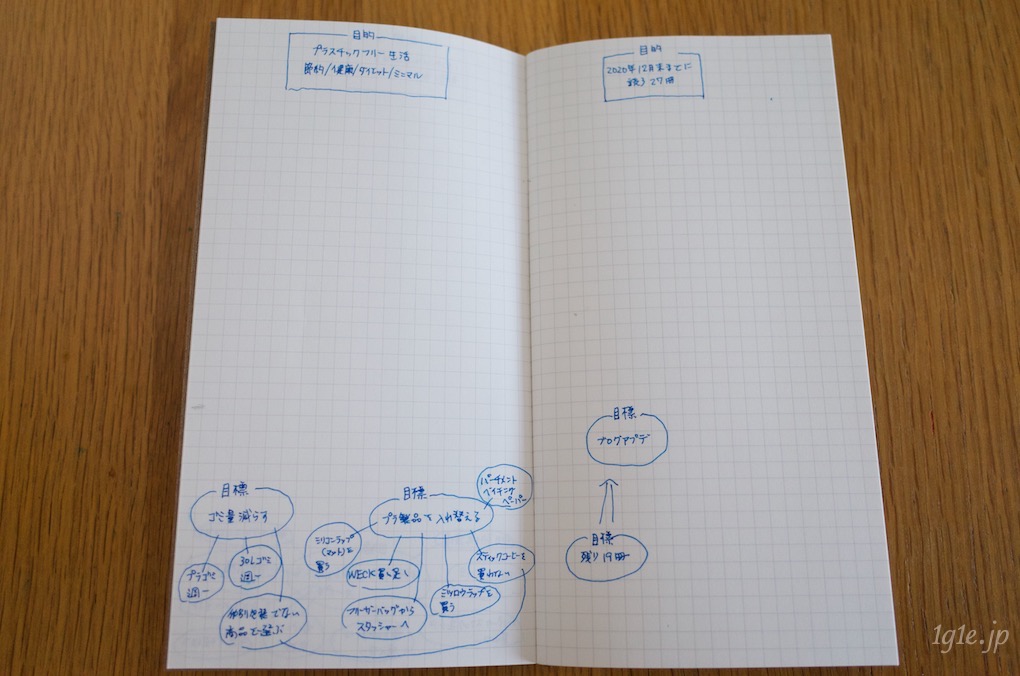 目的
プラスチックフリー生活
節約/健康/ダイエット/ミニマル
目標
ゴミ量減らす
プラゴミ
週一
30Lゴミ
週一
個別包装でない
商品を選ぶ
目標
プラ製品を入れ替える
パーチメント
ベイキング
ペーパー
シリコンラップ
(マット)を
買う
WECK買い足し
フリーザーバッグから
スタッシャーへ
ミツロウラップを
買う
スティックコーヒーを
買わない
目的
2020年12月末までに
残り27冊
目標
ブログアプデ
目標
残り19冊
1g1e.jp